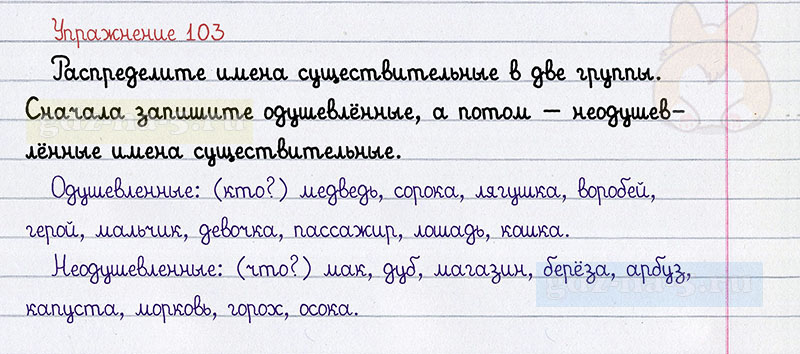 Упражнение 103
Распределите имена существительные в две группы.
Сначала запишите одушевлённые, а потом – неодушев-
лённые имена существительные.
Одушевленные: (кто?) медведь, сорока, лягушка, воробей,
герой, мальчик, девочка, пассажир, лошадь, кашка.
Неодушевленные: (что?) мак, дуб, магазин, берёза, арбуз,
капуста, морковь, горох, осока.